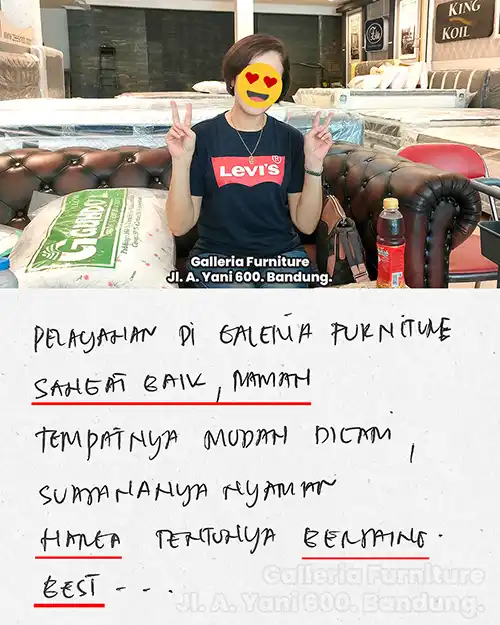 KING
KOIL
LEVI'S
Galleria Furniture
Jl. A. Yani 600. Bandung.
PELAYANAN DI GALERIA FURNITURE
SANGAT BAIK, RAMAH
TEMPATNYA MUDAH DICARI,
SUASANANYA NYAMAN
HARGA TENTUNYA BERSAING.
BEST - - .
Galleria Furniture
Jl. A. Yani 600. Bandung.